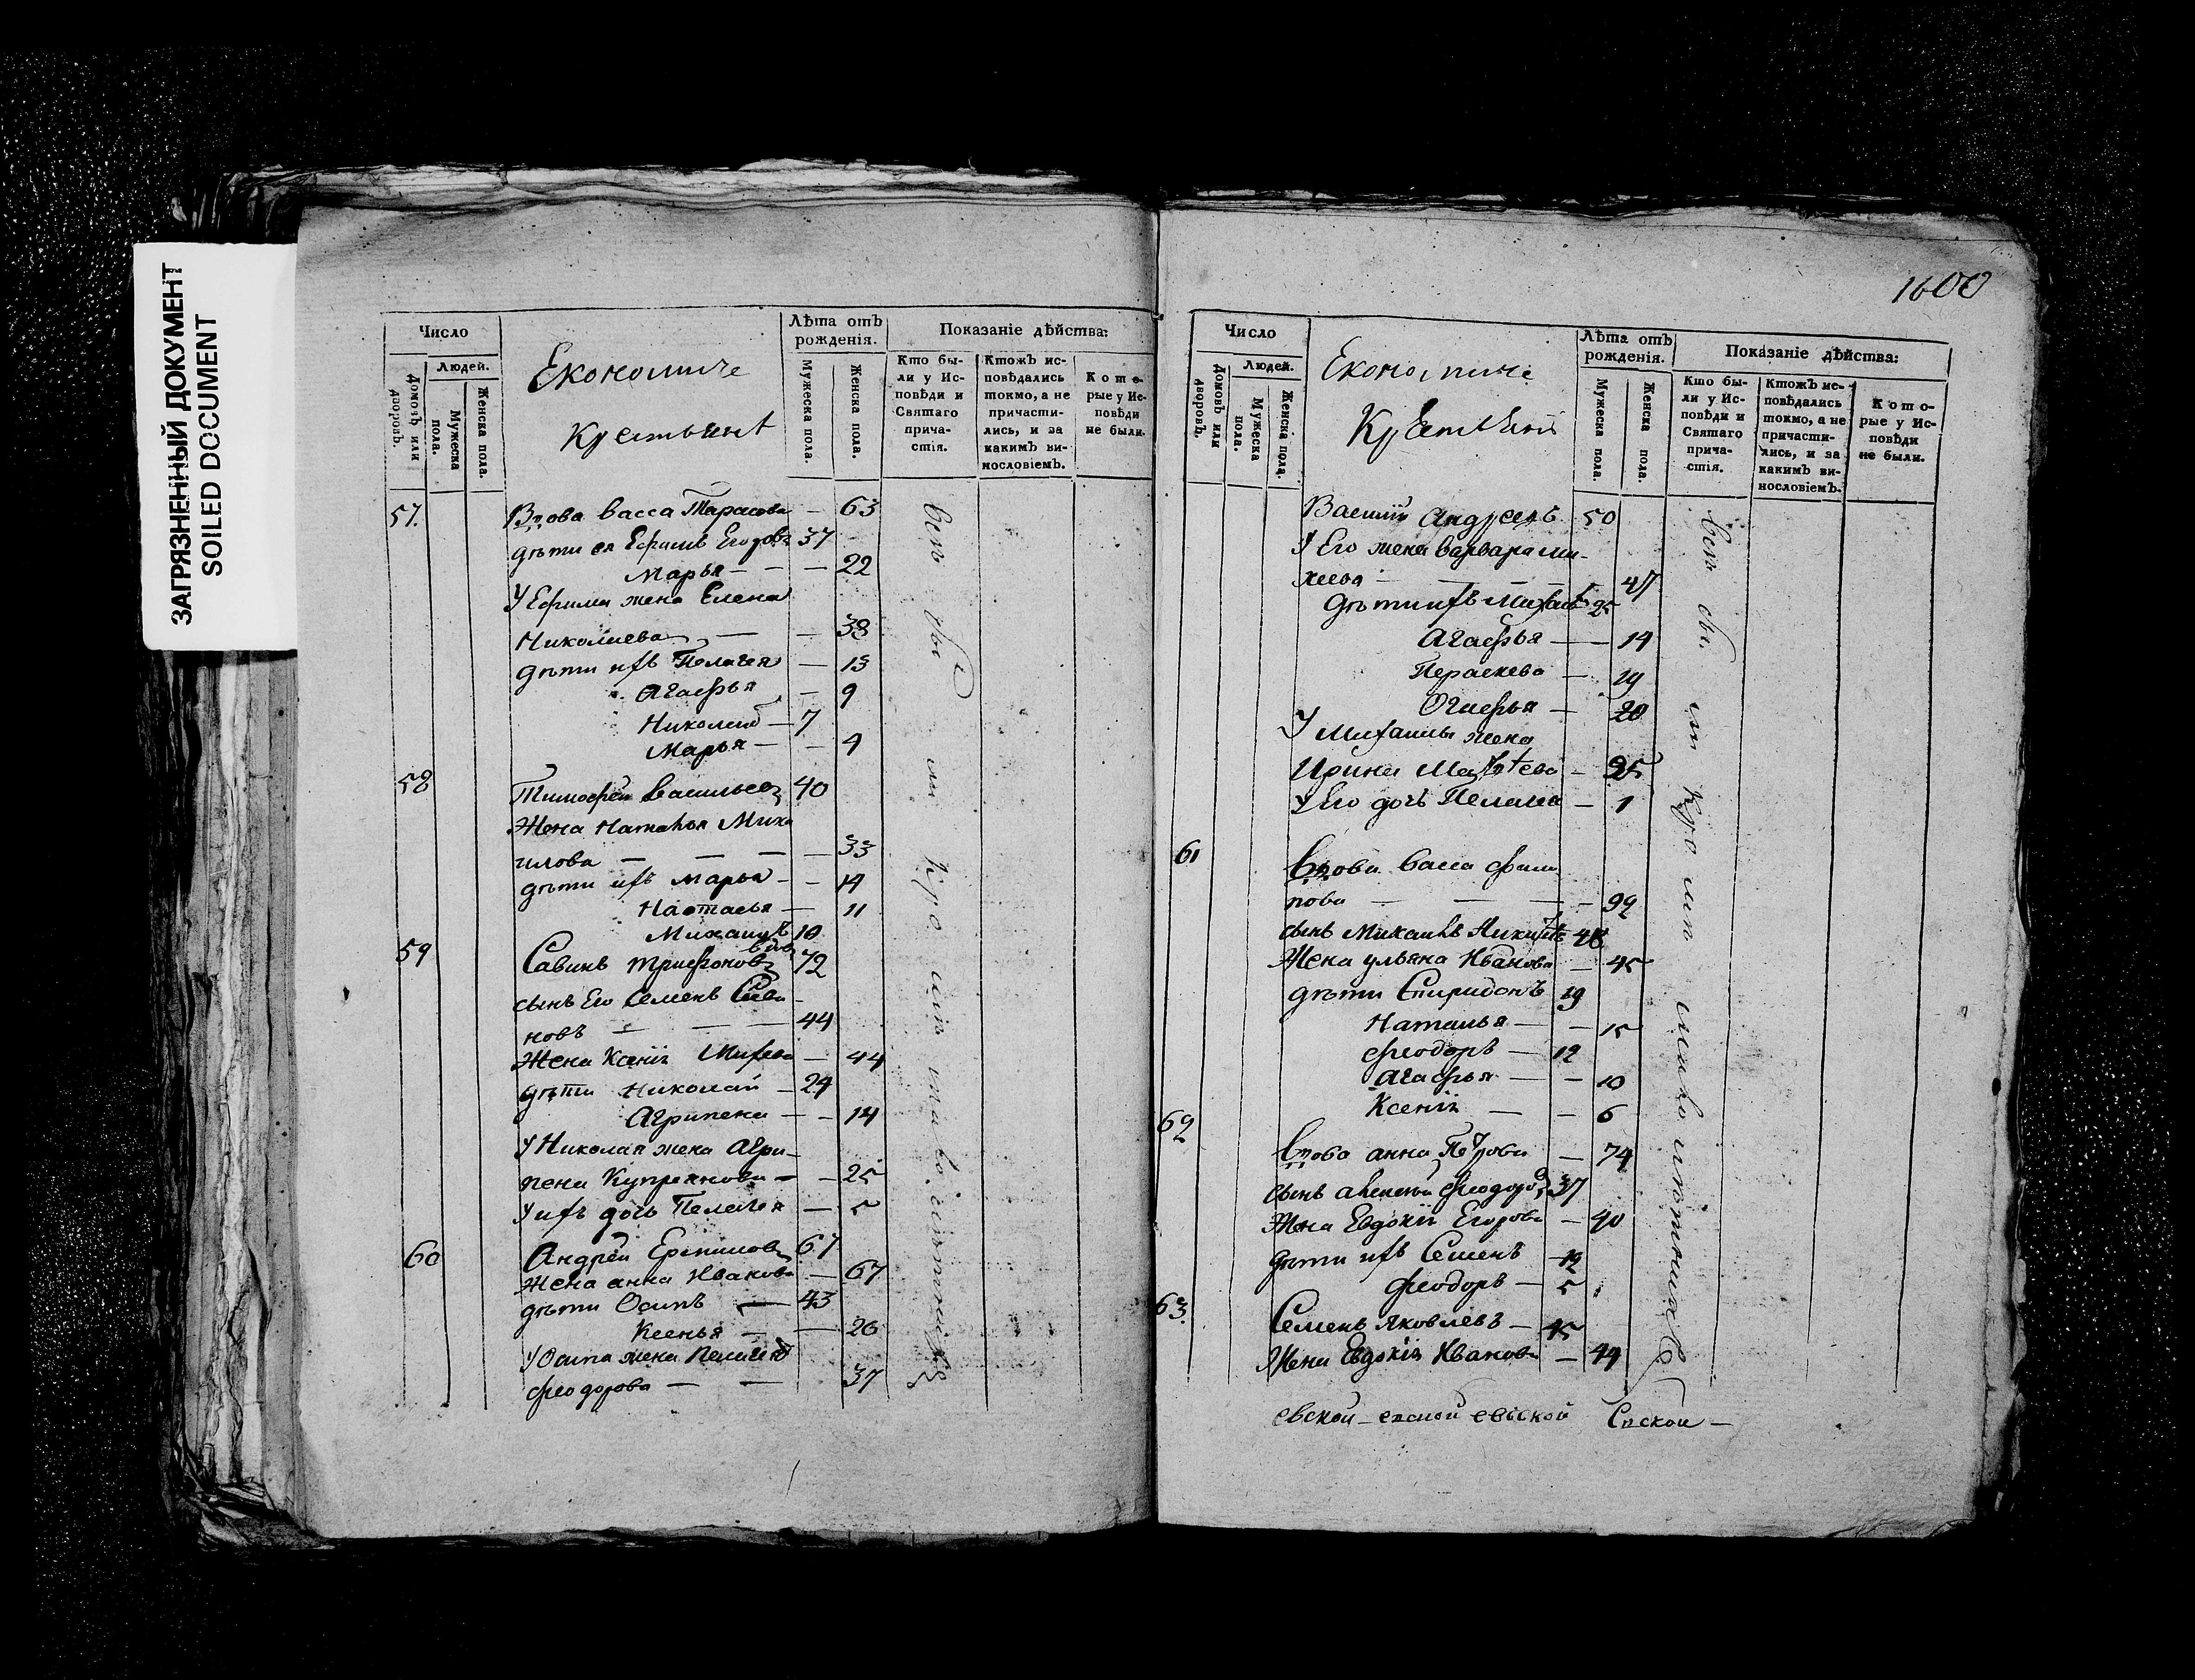 ЗАГРЯЗНЕННЫЙ ДОКУМЕНТ
SOILED DOCUMENT
Число
Людей.
Домовъ или дворовъ.
Мужеска пола.
Женска пола.
Економиче
Крестьянъ
Лѣта отъ рожденія.
Мужеска пола.
Женска пола.
Показаніе дѣйства:
Кто бы-
ли у Ис-
повѣди и
Святаго
прича-
стія.
Ктожъ ис-
повѣдались
токмо, а не
причасти-
лись, и за
какимъ ви-
нословіемъ.
Кото-
рые у Ис-
повѣди
не были.
57. Вдова васса Тарасова — 63
дѣти ея Ефимъ Егоровъ 37
Марья — — — 22
У Ефима жена Елена
Николаева — — 38
дѣти ихъ Пелагея — 13
Агафья — 9
Николай — 7
Марья — — 4
58 Тимофей Васильевъ 40
Жена Наталья Миха
илова — — — — 33
дѣти ихъ Марья — — 14
Настасья — 11
Михаилъ 10
59 Савинъ Трифоновъ вдов 72
сынъ Его Семенъ Сави-
новъ — — — 44
Жена Ксенія Михеева — 44
дѣти Николай — 24
Агрипена — — 14
У Николая жена Агри-
пена Купреянова — — 25
У ихъ дочь Пелагея — 5
60 Андрей Ерѣмиловъ 67
Жена анна Иванова — 67
дѣти Осипъ — 43
Ксенья — — 20
У Осипа жена Пелагея
феодорова — — 37
1600
Число
Людей.
Домовъ или дворовъ.
Мужеска пола.
Женска пола.
Економиче
Крестьянъ
Лѣта отъ рожденія.
Мужеска пола.
Женска пола.
Показаніе дѣйства:
Кто бы-
ли у Ис-
повѣди и
Святаго
прича-
стія.
Ктожъ ис-
повѣдались
токмо, а не
причасти-
лись, и за
какимъ ви-
нословіемъ.
Кото-
рые у Ис-
повѣди
не были.
Василий Андреевъ 50
У Его жена варвара ми-
хеева — — — — 47
Дѣти ихъ Михаилъ 25
Агафья — — 14
Пераскева — 19
Огафья — 20
У Михаилы жена
Ирина Матвѣева — 25
У Его дочь Пелагея — 1
61 Вдова васса фили
пова — — — 92
сынъ Михаилъ Никит 48
Жена ульяна Иванова — 45
дѣти Спиридонъ 19
Наталья — — 15
феодоръ — 12
Агафья — — 10
Ксенія — — 6
62 Вдова анна Петрова — 74
сынъ алексей феодоровъ 37
Жена Евдокія Егорова — 40
дѣти ихъ Семенъ — 12
феодоръ — 5
63. Семенъ Яковлевъ — 45
Жена Евдокія Иванова — 44